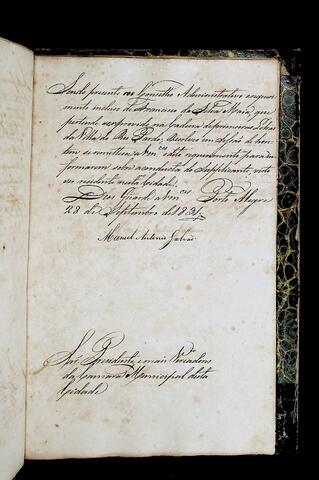 Sendo presente ao Conselho Administrativo o requeri-
mento incluso de Francisco da Silva Maia, que
pertende ser provido na Cadeira de primeiras Letras
da Villa do Rio Pardo, Resolveo em Sessão de hon-
tem se remettesse a V ces este requerimento para in-
formarem sobre a conducta do Supplicante, visto
ser residente nesta Cidade.
Deos Guarde a V ces Porto Alegre
28 de Septembro de
Manoel Antonio Galvão
Snr. Presidente, e mais Vereadores
da Camara Municipal desta
Cidade